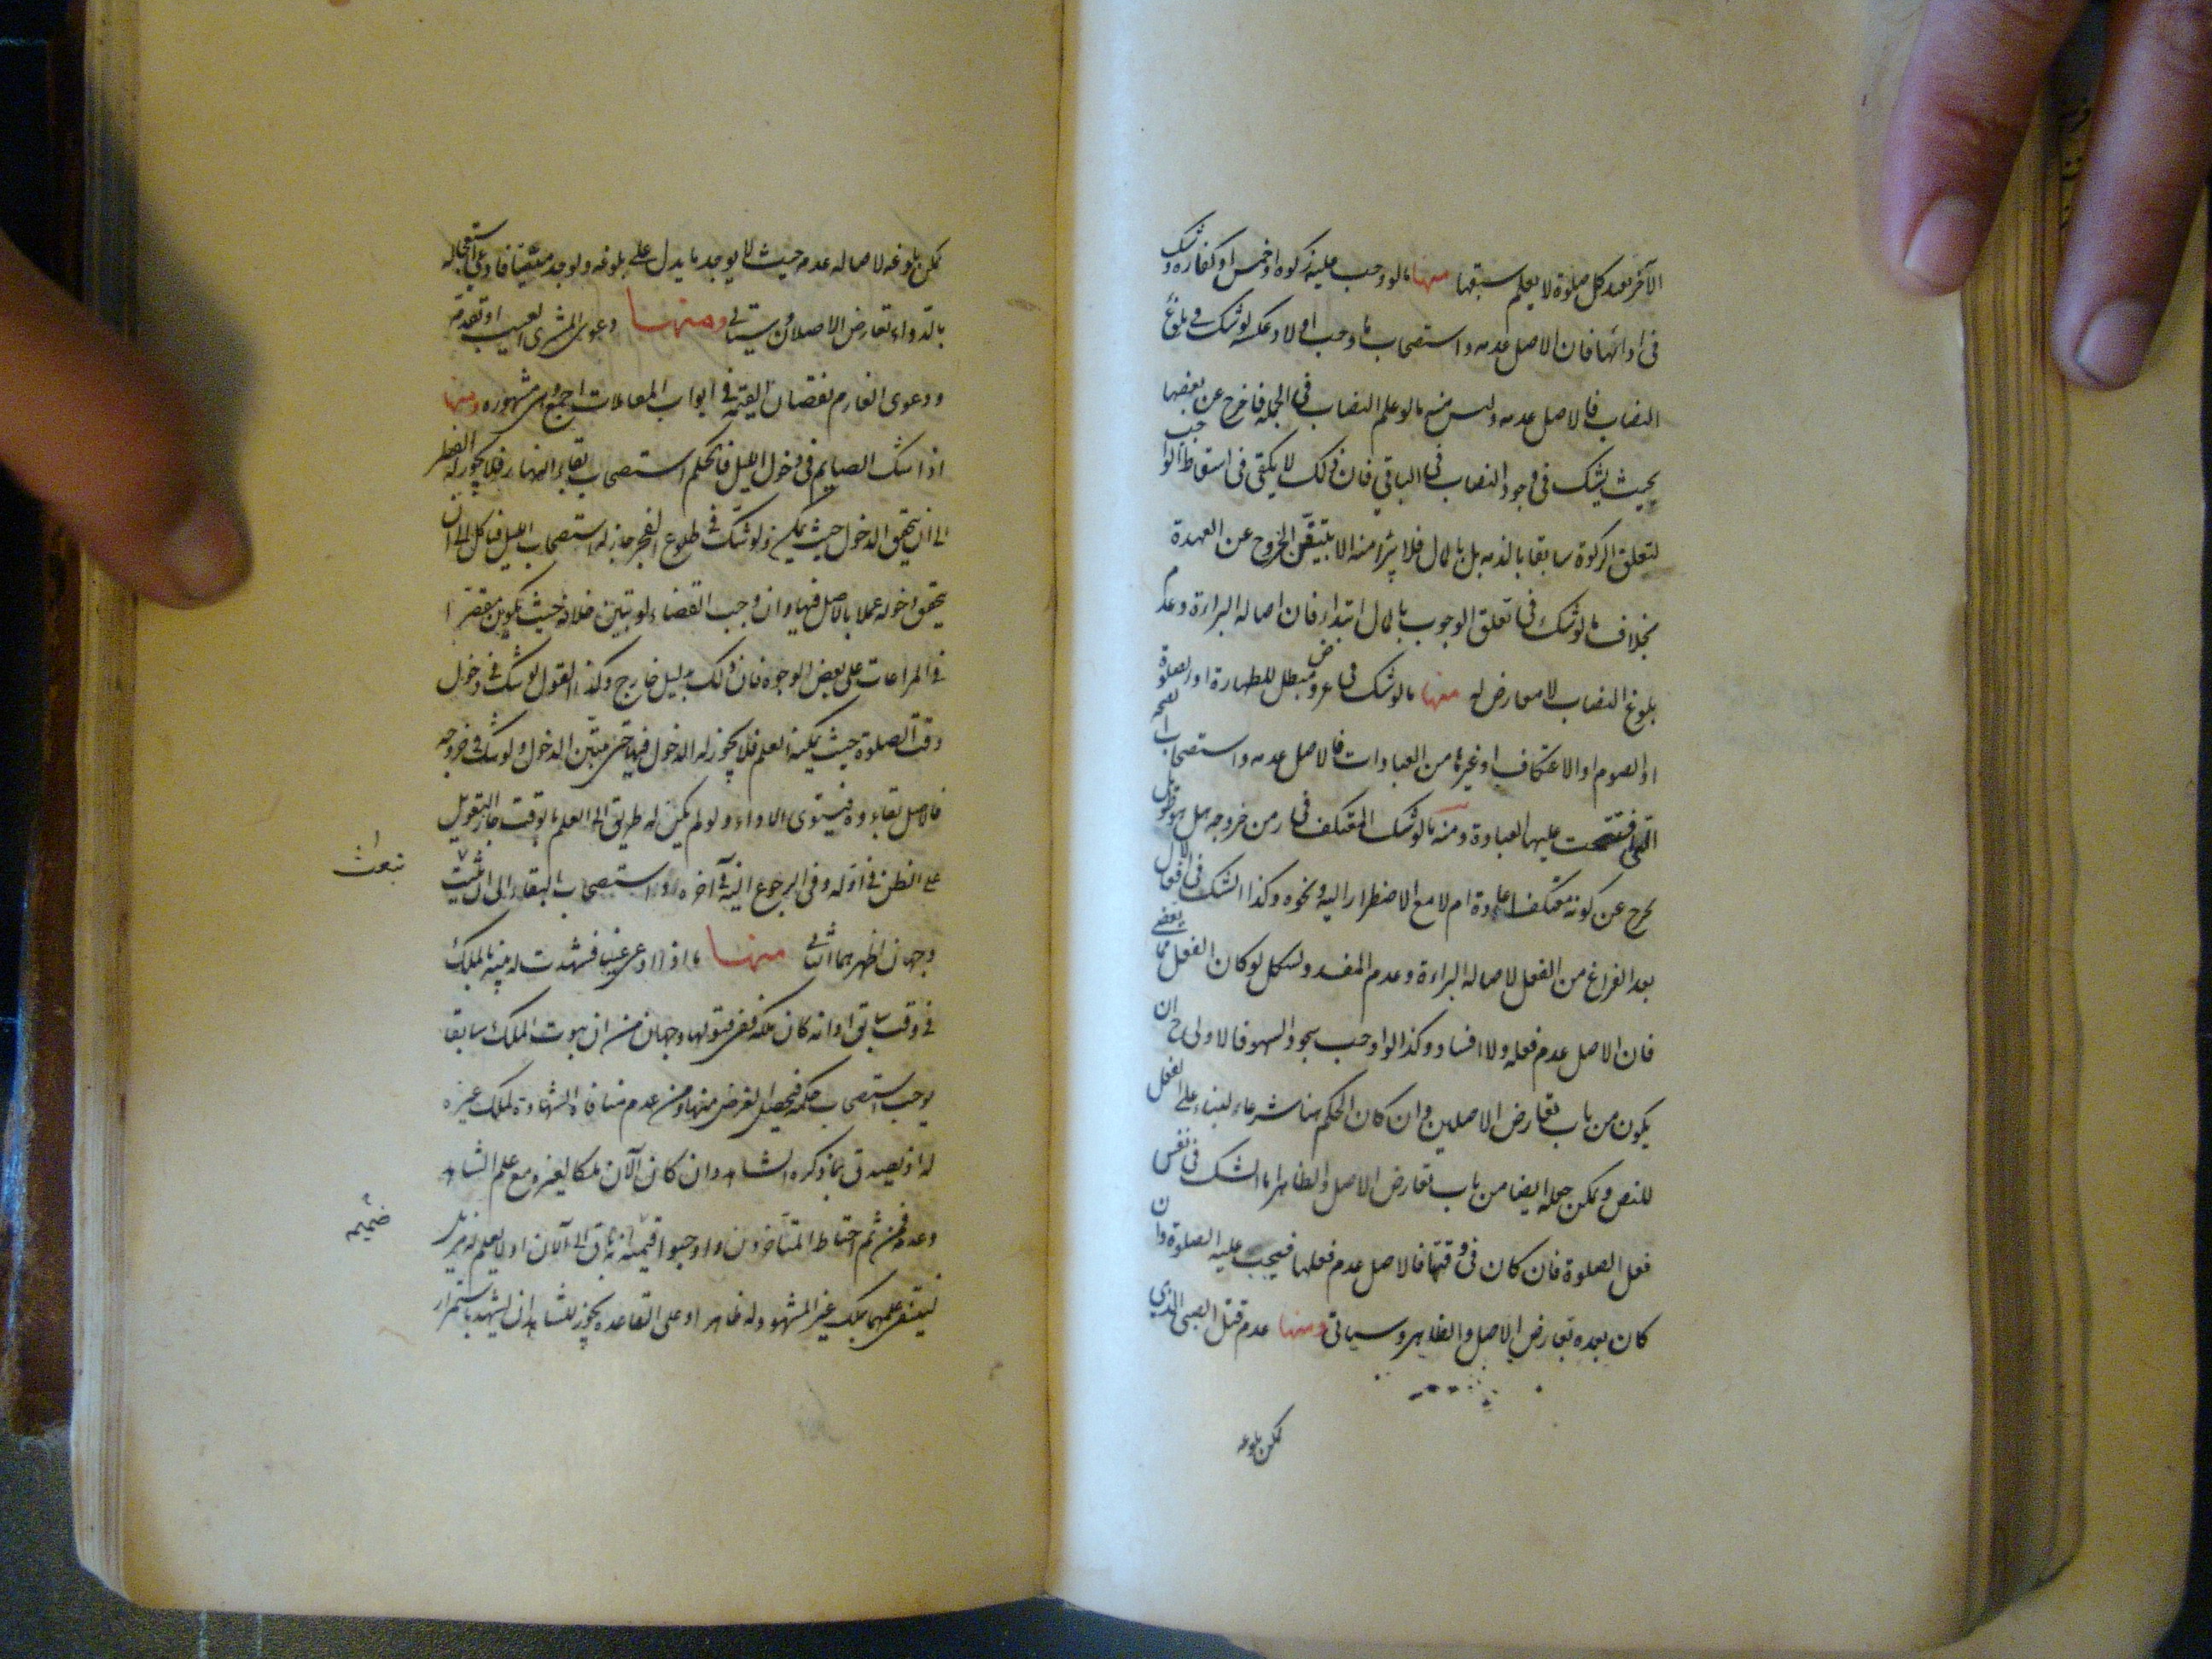 الآخر بعد كل صلوة لا يعلم سبقها منها ما لو وجب عليه زكوة او خمس او كفارة وشك
فى ادائها فان الاصل عدمه واستصحاب ما وجب اولا وعكسه لو شك فى بلوغ
النصاب فالاصل عدمه وليس منه ما لو علم النصاب فى الجملة فاخرج عن بعضها
بحيث يشك فى وجود النصاب فى الباقي فان ذلك لا يكفى فى اسقاط الواجب
لتعلق الزكوة سابقا بالذمه بل بالمال فلا يبرأ منه الا بتيقن الخروج عن العهدة
بخلاف ما لو شك فى تعلق الوجوب بالمال ابتداء فان اصالة البراءة وعدم
بلوغ النصاب لا معارض له منها ما لو شك فى عروض مبطل للطهارة او الصلوة
او الصوم او الاعتكاف او غيرها من العبادات فالاصل عدمه واستصحاب الصحه
التى افتتحت عليها العبادة ومنه ما لو شك المعتكف فى زمن خروجه هل
يخرج عن كونه معتكفا عادة ام لا مع الاضطرار اليه ونحوه وكذا الشك فى الافعال
بعد الفراغ من الفعل لاصالة البراءة وعدم المفسد ويشكل لو كان الفعل مما يقضى
فان الاصل عدم فعله ولا افساد وكذا لو اوجب سجود السهو فالاولى ح ان
يكون من باب تعارض الاصلين وان كان الحكم هنا شرعا البناء على الفعل
للنص ويمكن جعله ايضا من باب تعارض الاصل والظاهر اما الشك فى نفس
فعل الصلوة فان كان فى وقتها فالاصل عدم فعلها فيجب عليه الصلوة وان
كان بعده تعارض الاصل والظاهر وسياتى ومنها عدم قتل الصبي الذي
يمكن بلوغه
يمكن بلوغه لاصالة عدمه حيث لا يوجد ما يدل على بلوغه ولو وجد ميتا فادعى استعجاله
بالدواء تعارض الاصلان وسياتى ومنها دعوى المشترى العيب او تقدمه
ودعوى الغارم نقصان القيمة فى ابواب المعاملات اجمع وهى مشهورة ومنها
اذا شك الصايم فى دخول الليل فالحكم استصحاب بقاء النهار فلا يجوز له الفطر
الى ان يتحقق الدخول حيث يمكن ولو شك فى طلوع الفجر جاز له استصحاب الليل فياكل الى ان
يتحقق دخوله عملا بالاصل فيها وان وجب القضاء لو تبين خلافه حيث يكون مقصرا
فى المراعات على بعض الوجوه فان ذلك بدليل خارج وكذا القول لو شك فى دخول
وقت الصلوة حيث يمكنه العلم فلا يجوز له الدخول فيها حتى يتيقن الدخول ولو شك فى خروجه
فالاصل بقاءوه فينوى الاداء ولو لم يكن له طريق الى العلم بالوقت جاز التعويل
على الظن فى اوله وفى الرجوع اليه فى آخره او استصحاب البقاء الى ان يثبت
وجهان اظهرهما الثانى منها ما اذا ادعى عينا فشهدت له بينه بالملك
فى وقت سابق او انه كان ملكه ففى قبولها وجهان من ان ثبوت الملك سابقا
يوجب استصحاب حكمه فيحصل الغرض منها ومن عدم منافاة الشهادة لملك غيره
له اذ يصدق بما ذكره الشاهد وان كان الآن ملكا لغيره ومع علم الشاهد
وعدمه فمن ثم احتاط المتأخرون واوجبوا ضميمة انه باق الى الآن او لا يعلم له مزيل
عليهما بملك غير المشهود له ظاهرا وعلى القاعدة يجوز للشاهد ان يشهد باستمرار